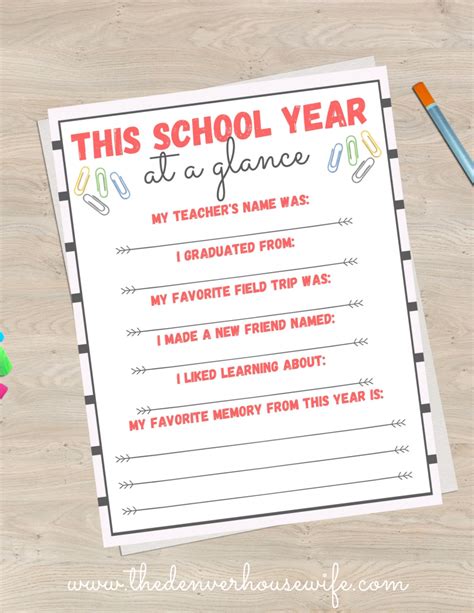 THIS SCHOOL YEAR
at a glance
MY TEACHER'S NAME WAS:
I GRADUATED FROM:
MY FAVORITE FIELD TRIP WAS:
I MADE A NEW FRIEND NAMED:
I LIKED LEARNING ABOUT:
MY FAVORITE MEMORY FROM THIS YEAR IS:
www.thedenverhousewife.com